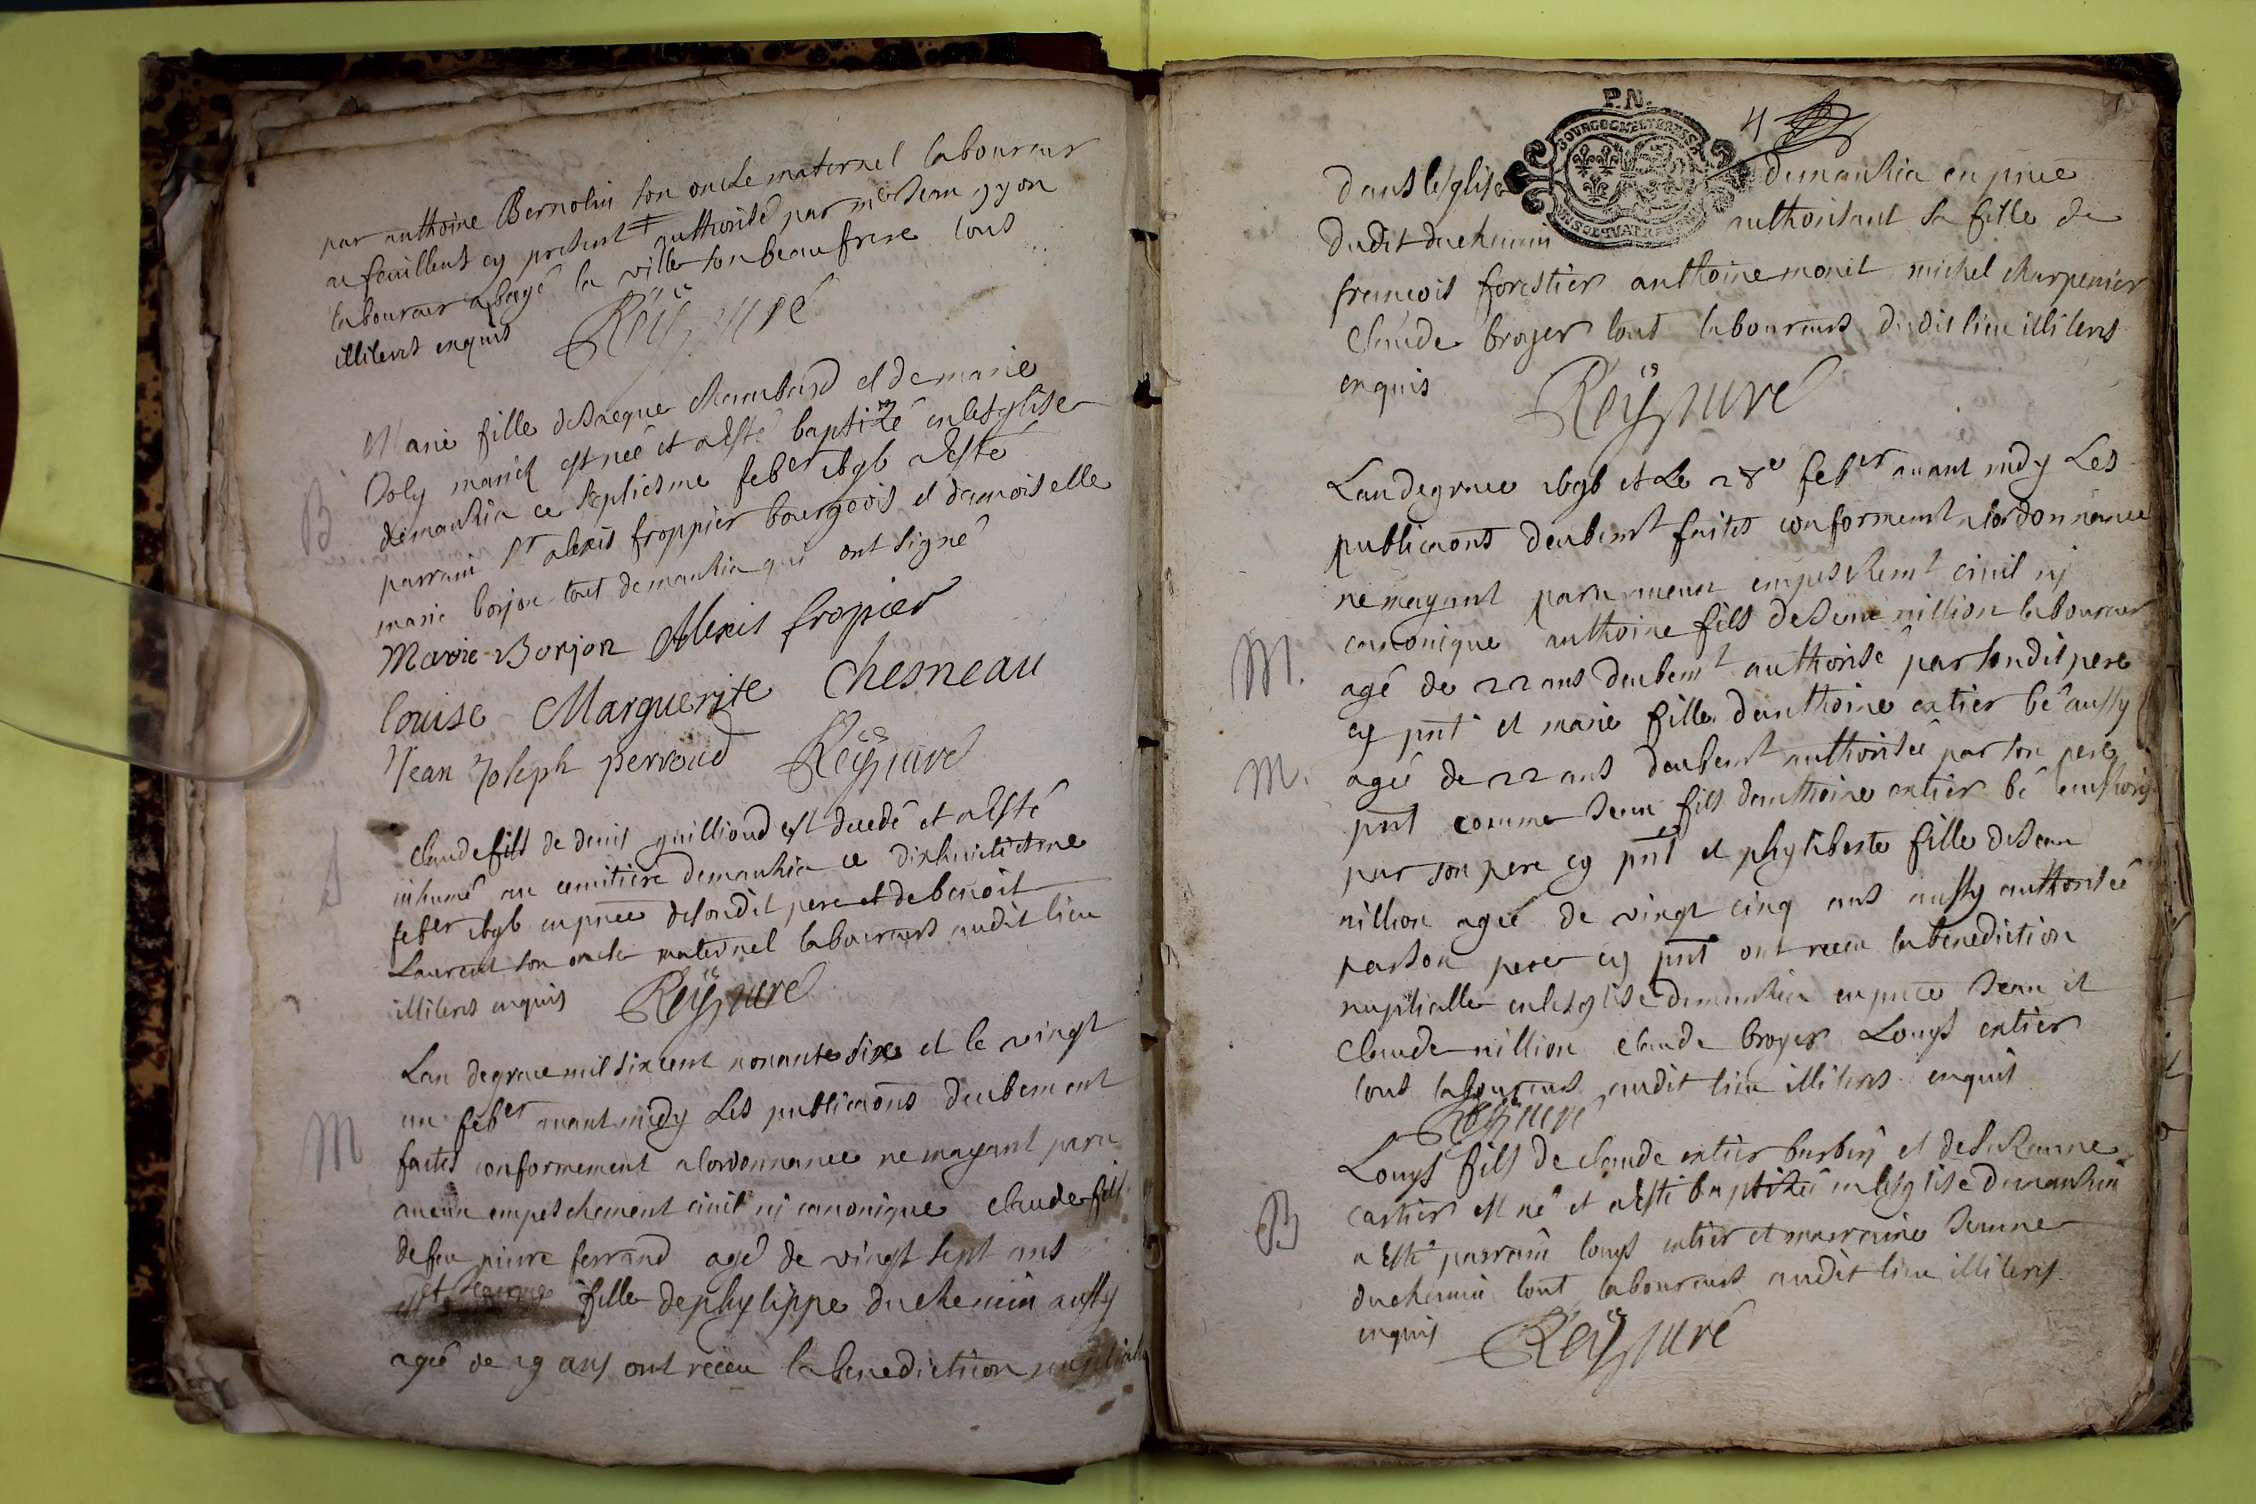 par anthoine Bernolin son oncle maternel laboureur
a feuillens cy present authorisé par me Jean gyon
laboureur a bagé la ville son beaufrere tous
illiteres enquis Reÿ curé
B Marie fille de Jacque Chambard et de marie
Doly mariés est neé et a esté baptizé en lesglise
demanhia ce septiesme feber 1696 a esté
parrain sr alexis froppier bourgeois et damoiselle
marie borjon tout demanhia qui ont signé
Marie Borjon Alexis fropier
Louise Marguerite Chesneau
Jean Joseph perroud Reÿ curé
S Claude fils de denis guillioud est decedé et a esté
inhumé au cemitiere demanhia ce dixhuictiesme
feber 1696 en pnce de sondit pere et de benoit
Laurent son oncle maternel laboureurs audit lieu
illiteres enquis Reÿ curé
M Lan de grace mil six cent nonante six et le vingt
un feber avant midy Les publicaons deubement
faites conformement a lordonnance ne mayant paru
aucun empeschement civil ny canonique claude fils
de feu pierre ferrand agé de vingt sept ans
et Jeanne fille de phylippe duchemin aussy
ageé de 19 ans ont receu la benediction nuptialle
P.N.
4
dans leglise demanhia en pnce
dudit duchemin authorisant sa fille de
francois forestier anthoine monet michel charpenier
Claude broyer tout laboureurs dudit lieu illiteres
enquis Reÿ curé
M. Lan de grace 1696 et Le 28e feber avant midy Les
publicaons deubemt faites conformemt a lordonnance
ne mayant paru aucun empeschemt civil ny
canonique anthoine fils de Jean nillion laboureur
agé de 22 ans deubemt authorisé par sondit pere
cy pnt et marie fille danthoine catier bé aussy
M. ageé de 22 ans deubemt authoriseé par son pere
pnt comme Jean fils danthoine catier bé
par son pere cy pnt et phyliberte fille de Jean
nillion ageé de vingt cinq ans aussy authoriseé
par son pere cy pnt ont receu la benediction
nuptialle en lesglise demanhia en pnce Jean et
Claude nillion claude broyer Louys catier
tous laboureurs audit lieu illiteres enquis
Reÿ curé
B Louys fils de claude catier burbin et de
cartier est né et a esté baptizé en lesglise demanhia
a esté parrain louys catier et marraine Jeanne
duchemin tout laboureurs audit lieu illiteres
enquis Reÿ curé